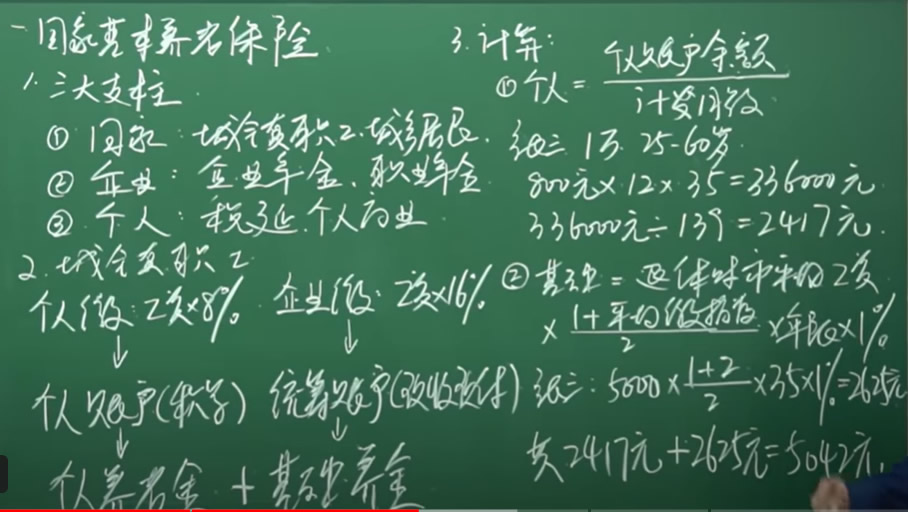 一国家基本养老保险
1. 三大支柱
① 国家：城企直职工.城乡居民.
② 企业：企业年金、职业年金
③ 个人：税延.个人商业
2. 城企直职工
个人缴：工资×8%. 企业缴：工资×16%
↓ ↓
个人账户(积累) 统筹账户(现收现付)
↓ ↓
个人养老金 + 基础养金
3. 计算：
① 个人 = 个人账户余额
计发月数
张三 1万 25-60岁.
800元×12×35=336000元
336000元÷139=2417元.
② 基础 = 退休时市平均工资
× 1+平均缴指数 / 2 ×年限×1%
张三：5000×1+2 / 2 ×35×1%=2625元
共2417元+2625元=5042元.